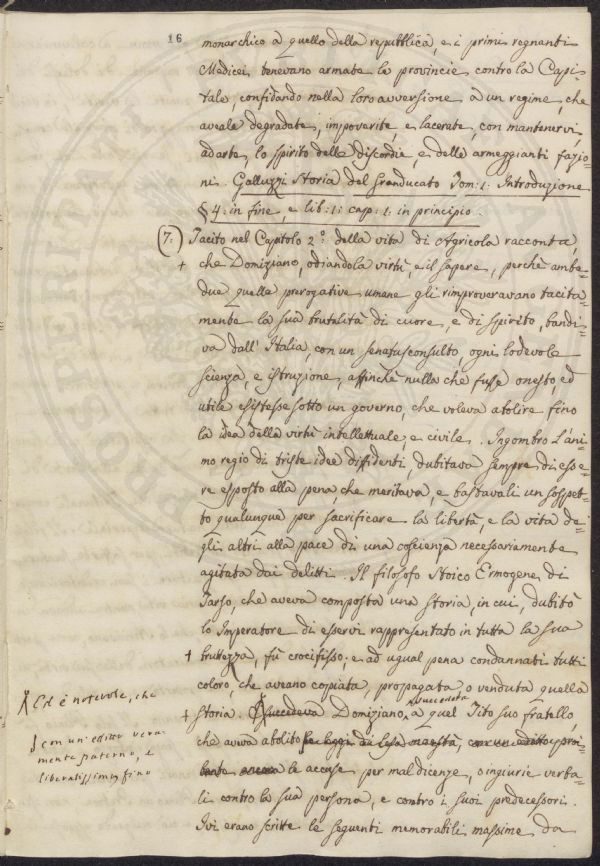 16
monarchico à quello della repubblica, e i primi regnanti
Medicei tenevano armate le provincie contro la Capi-
tale, confidando nella loro avversione à un regime, che
aveale degradate, impoverite, e lacerate, con mantenervi,
ad arte, lo spirito delle discordie, e delle armeggianti fazio-
ni. Galluzzi Storia del Granducato Tom: 1: Introduzione
§ 4: in fine, e lib: 1: cap: 1: in principio.
(7:) Tacito nel Capitolo 2º della vita di Agricola racconta,
+ che Domiziano, odiando la virtù, e il sapere, perchè ambe-
due quelle prerogative umane gli rimproveravano tacita-
mente la sua brutalità di cuore, e di spirito, bandi-
va dall' Italia con un senatusconsulto, ogni lodevole
scienza, e istruzione, affinchè nulla che fusse onesto, ed
utile esistesse sotto un governo, che voleva abolire fino
la idea della virtù intellettuale, e civile. Ingombro l'ani-
mo regio di triste idee diffidenti, dubitava sempre di esse-
re esposto alla pena, che meritava, e bastavali un sospet-
to qualunque per sacrificare la libertà, e la vita de-
gli altri alla pace di una coscienza necessariamente
agitata dai delitti. Il filosofo Stoico Ermogene di
Tarso, che aveva composta una storia, in cui, dubitò
lo Imperatore di esservi rappresentato in tutta la sua
+ bruttezza, fù crocifisso, e ad ugual pena condannati tutti
coloro, che aveano copiata, propagata, o venduta quella
successore
+ storia. Succedeva Domiziano, a quel Tito suo fratello,
che aveva abolito le leggi di lesa maestà, con un editto proi-
le accuse per maldicenze, o ingiurie verba-
li contro la sua persona, e contro i suoi predecessori.
Ivi erano scritte le seguenti memorabili massime da
Ed è notevole, che
con un' editto vera-
mente paterno, e
liberalissimo fino